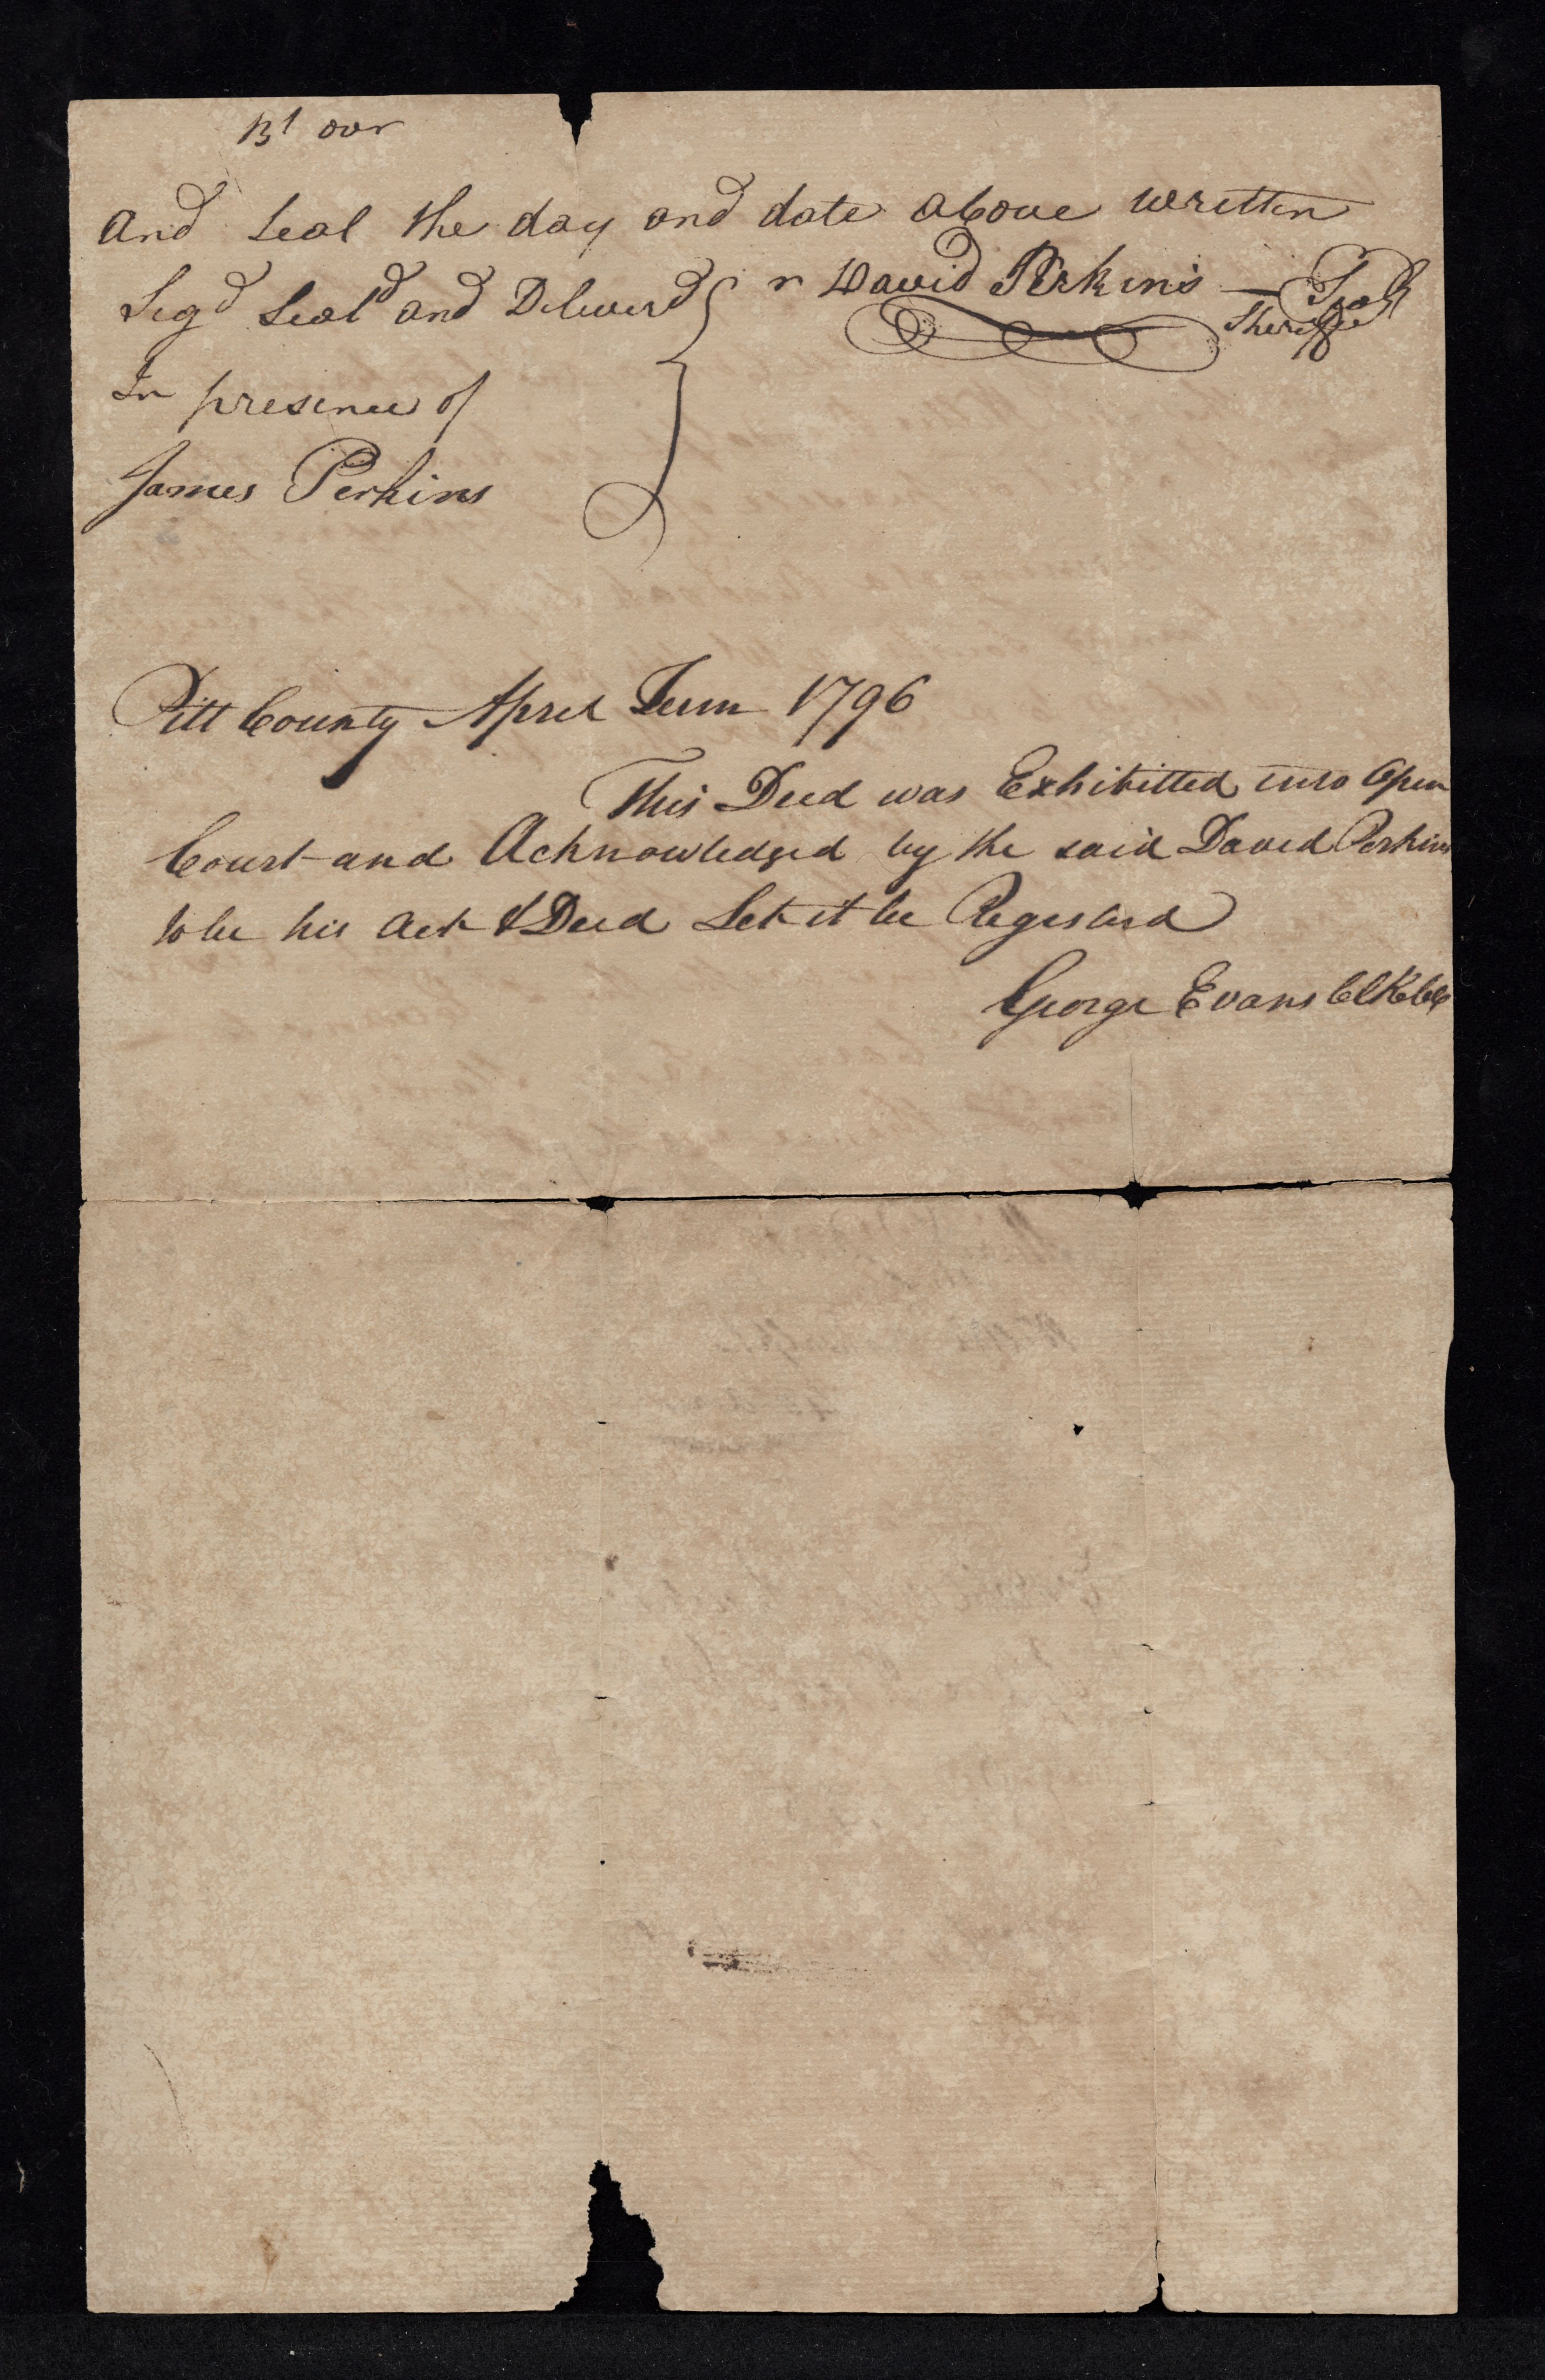 and Seal the day and date above written
Sigd Seald and Deliverd David Perkins Seal
Sheriff
In presence of
James Perkins
Pitt County April Term 1796
This Deed was Exhibitted into Open
Court and Acknowledged by the said David Perkins
to be his Act & Deed Let it be Registerd
George Evans